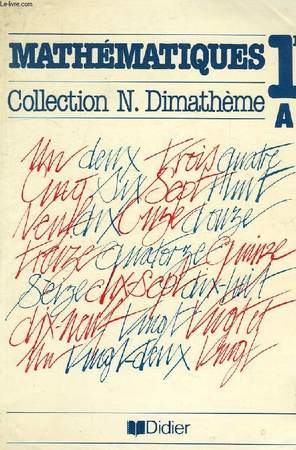 MATHÉMATIQUES 1re
A
Collection N. Dimathème
Un deux trois quatre
Cinq Six Sept Huit
Neuf dix Onze douze
treize quatorze Quinze
Seize dix-sept dix-huit
dix-neuf Vingt Vingt et
Un Vingt-deux Vingt
Didier